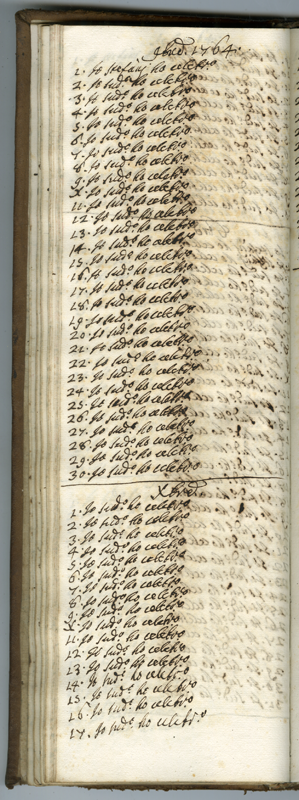 9bre. 1764.
1. Io Stefanj ho celebr.o
2. Io sud.o ho celebr.o
3. Io sud.o ho celebr.o
4. Io sud.o ho celebr.o
5. Io sud.o ho celebr.o
6. Io sud.o ho celebr.o
7. Io sud.o ho celebr.o
8. Io sud.o ho celebr.o
9. Io sud.o ho celebr.o
X. Io sud.o ho celebr.o
11. Io sud.o ho celebr.o
12. Io sud.o ho celebr.o
13. Io sud.o ho celebr.o
14. Io sud.o ho celebr.o
15. Io sud.o ho celebr.o
16. Io sud.o ho celebr.o
17. Io sud.o ho celebr.o
18. Io sud.o ho celebr.o
19. Io sud.o ho celebr.o
20. Io sud.o ho celebr.o
21. Io sud.o ho celebr.o
22. Io sud.o ho celebr.o
23. Io sud.o ho celebr.o
24. Io sud.o ho celebr.o
25. Io sud.o ho celebr.o
26. Io sud.o ho celebr.o
27. Io sud.o ho celebr.o
28. Io sud.o ho celebr.o
29. Io sud.o ho celebr.o
30. Io sud.o ho celebr.o
Xbre.
1. Io sud.o ho celebr.o
2. Io sud.o ho celebr.o
3. Io sud.o ho celebr.o
4. Io sud.o ho celebr.o
5. Io sud.o ho celebr.o
6. Io sud.o ho celebr.o
7. Io sud.o ho celebr.o
8. Io sud.o ho celebr.o
9. Io sud.o ho celebr.o
X. Io sud.o ho celebr.o
11. Io sud.o ho celebr.o
12. Io sud.o ho celebr.o
13. Io sud.o ho celebr.o
14. Io sud.o ho celebr.o
15. Io sud.o ho celebr.o
16. Io sud.o ho celebr.o
17. Io sud.o ho celebr.o